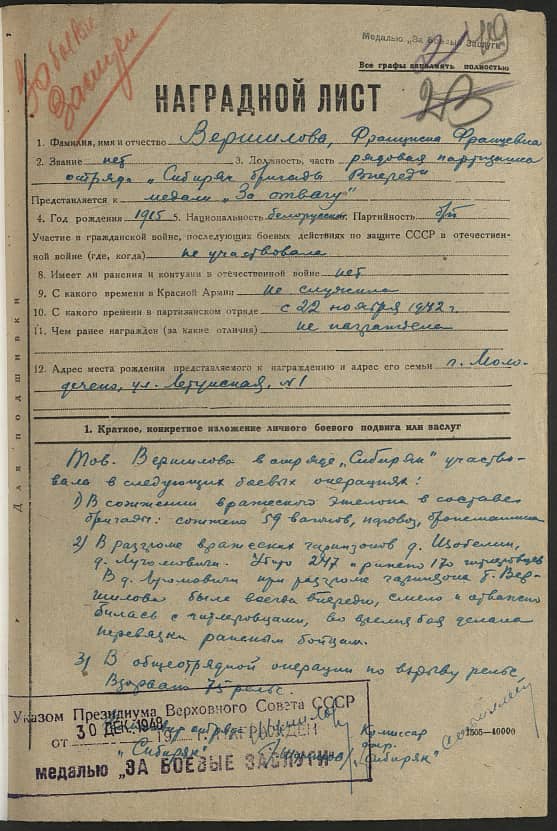 За боевые
заслуги
Медалью „За Боевые Заслуги"
Все графы заполнять полностью
НАГРАДНОЙ ЛИСТ
1. Фамилия, имя и отчество Вершилова, Франциска Францевна
2. Звание нет 3. Должность, часть рядовая партизанка
отряда „Сибиряк бригады Вперед"
Представляется к медали „За отвагу"
4. Год рождения 1915 5. Национальность белорусская. Партийность б/п
Участие в гражданской войне, последующих боевых действиях по защите СССР и отечествен-
ной войне (где, когда) не участвовала
8. Имеет ли ранения и контузии в отечественной войне нет
9. С какого времени в Красной Армии не служила
10. С какого времени в партизанском отряде с 22 ноября 1942 г.
11. Чем ранее награжден (за какие отличия) не награждена
12. Адрес места рождения представляемого к награждению и адрес его семьи г. Моло-
дечено, ул. №1
Для подшивки
1. Краткое, конкретное изложение личного боевого подвига или заслуг
Тов. Вершилова в отряде „Сибиряк" участво-
вала в следующих боевых операциях:
1) В сожжении вражеского эшелона в составе
бригады: сожжено 59 вагонов, паровоз, бронемашина
2) В разгроме вражеских гарнизонов д.
д. Убито 247 и ранено 170 гитлеровцев
В д. при разгроме гарнизона т. Вер-
шилова была всегда впереди, смело и отважно
билась с гитлеровцами, во время боя делала
перевязки раненым бойцам.
3) В общеотрядной операции по взрыву рельс
Взорвано 75 рельс.
Указом Президиума Верховного Совета СССР
от 30 ДЕК. 1948 НАГРАЖДЕН
медалью „ЗА БОЕВЫЕ ЗАСЛУГИ"
Командир отряда
„Сибиряк"
Комиссар
отр.
„Сибиряк"
1505—40000